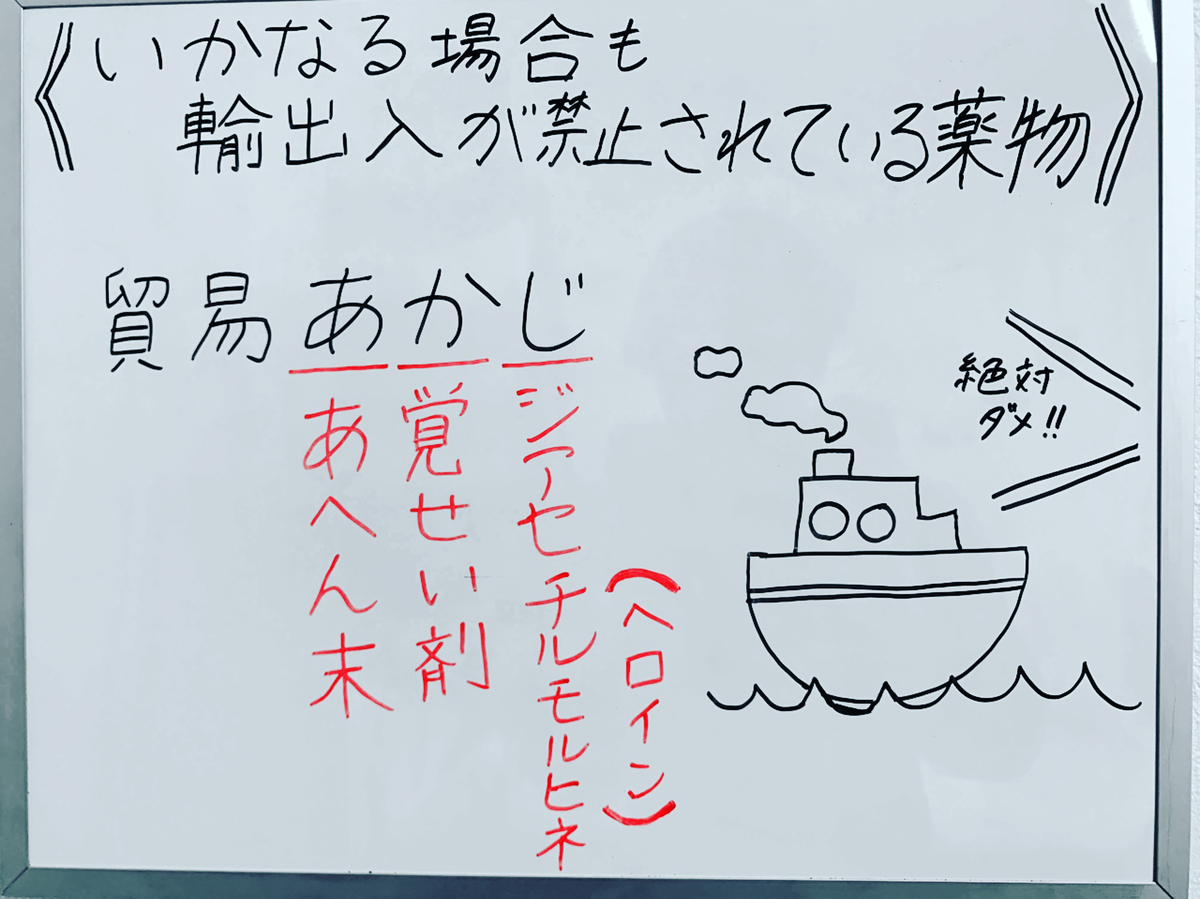 《いかなる場合も
輸出入が禁止されている薬物》
貿易あかじ
あへん末
覚せい剤
ジアセチルモルヒネ
(ヘロイン)
絶対
ダメ!!